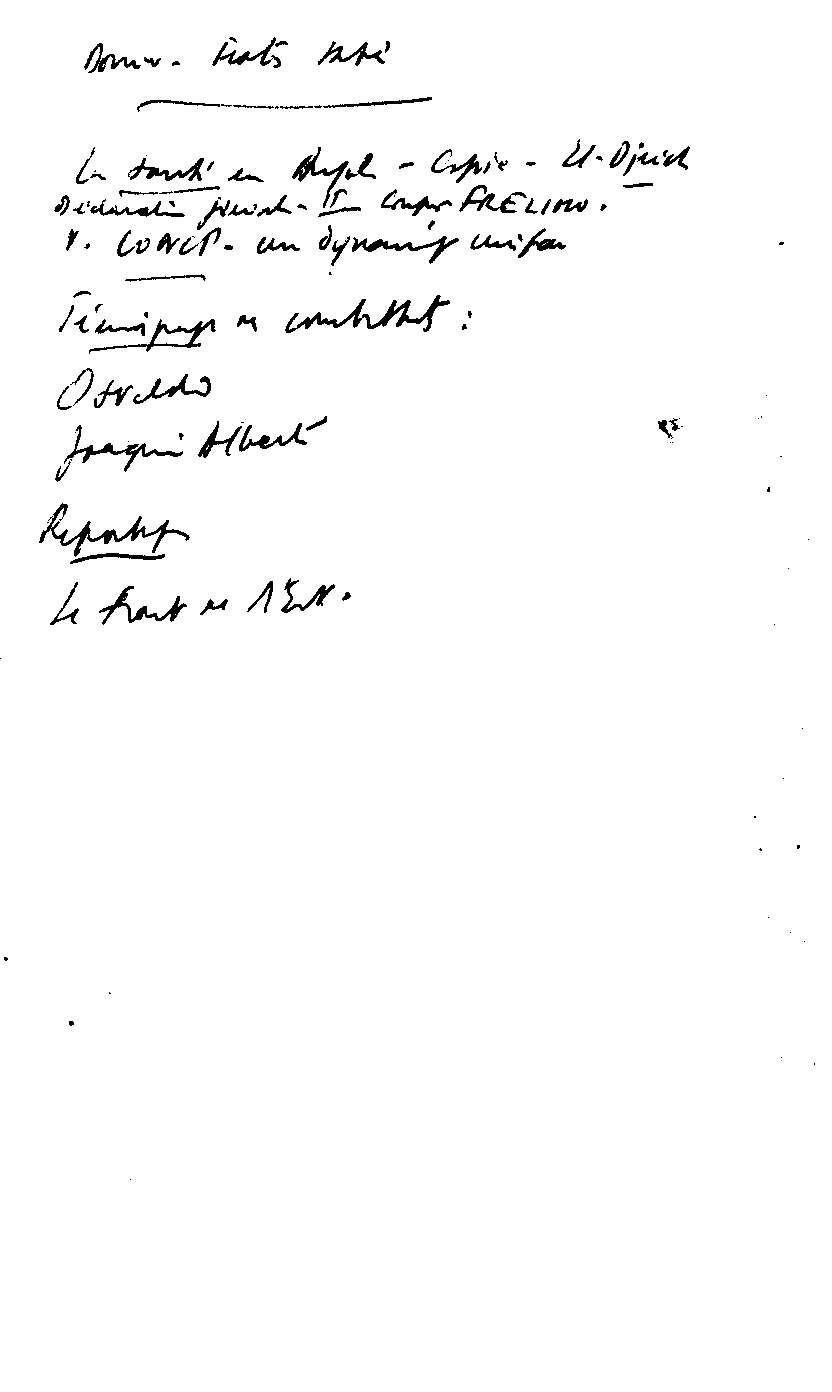 Dossier - 
La santé en Angola - Copie - El-Djeich
Déclaration générale - II Congrès FRELIMO.
V. CONCP - un dynamique
Témoignages de combattants :
Osvaldo
Joaquim Alberto
Reportage
Le Front de l'Est.